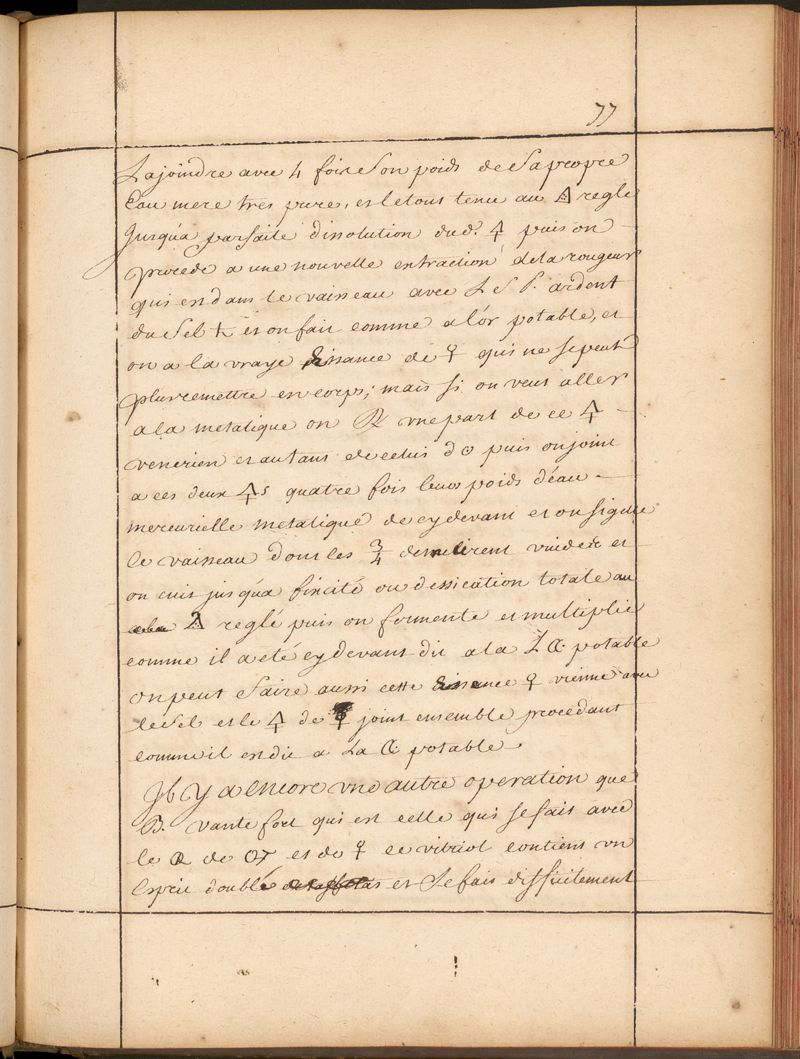 77
La joindre avec 4 fois son poids de sa propre
Eau mere tres pure, et le tout tenu au 🜂 reglé
Jusqu'a parfaite dissolution dud. 🜍 puis on
procede a une nouvelle extraction de la rougeur
qui est dans le vaisseau avec L'es P. ardent
du sel ♄ et on fait comme a l'or potable, et
on a la vraye Essance de ♀ qui ne se peut
plus remettre en corps; mais si on veut aller
a la metalique on ℞ une part de ce 🜍
venerien et autant de celui d'☉ puis on joint
a ces deux 🜍s quatre fois leurs poids d'eau
mercurielle metalique de cy devant et on sigille
le vaisseau dont les 3/4 demeurent vuides et
on cuit jusqu'a fixité ou dessication totale au
🜂 reglé puis on fermente et multiplie
comme il a eté cy devant dit a la L potable
on peut faire aussi cette Essence ♀ vienne avec
le sel et le 🜍 de ☿ joint ensemble procedant
comme il est dit a La potable
Jl y a encore une autre operation que
B. vante fort qui est celle qui se fait avec
le de et de ♀ ce vitriol contient un
Esprit doublé et se fait difficilement